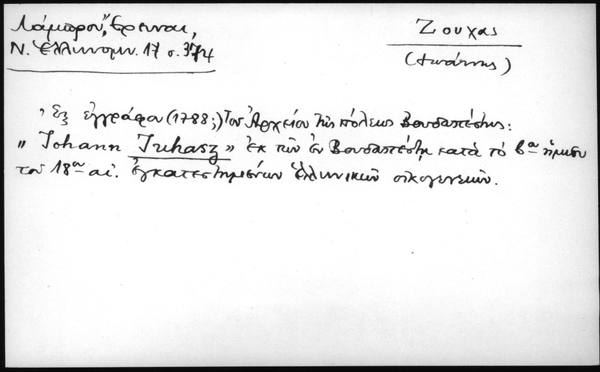 Λάμπρου, Ἔρευναι,
Ν. Ἑλληνομν. 17 σ. 374
Ζουχας
(Ἰωάννης)
Ἐξ ἐγγράφου (1788;) τοῦ Ἀρχείου τῆς πόλεως Βουδαπέστης:
„ Johann Juhasz „ ἐκ τῶν ἐν Βουδαπέστῃ κατὰ τὸ βον ἥμισυ
τοῦ 18ου αἰ. ἐγκατεστημένων ἑλληνικῶν οἰκογενειῶν.